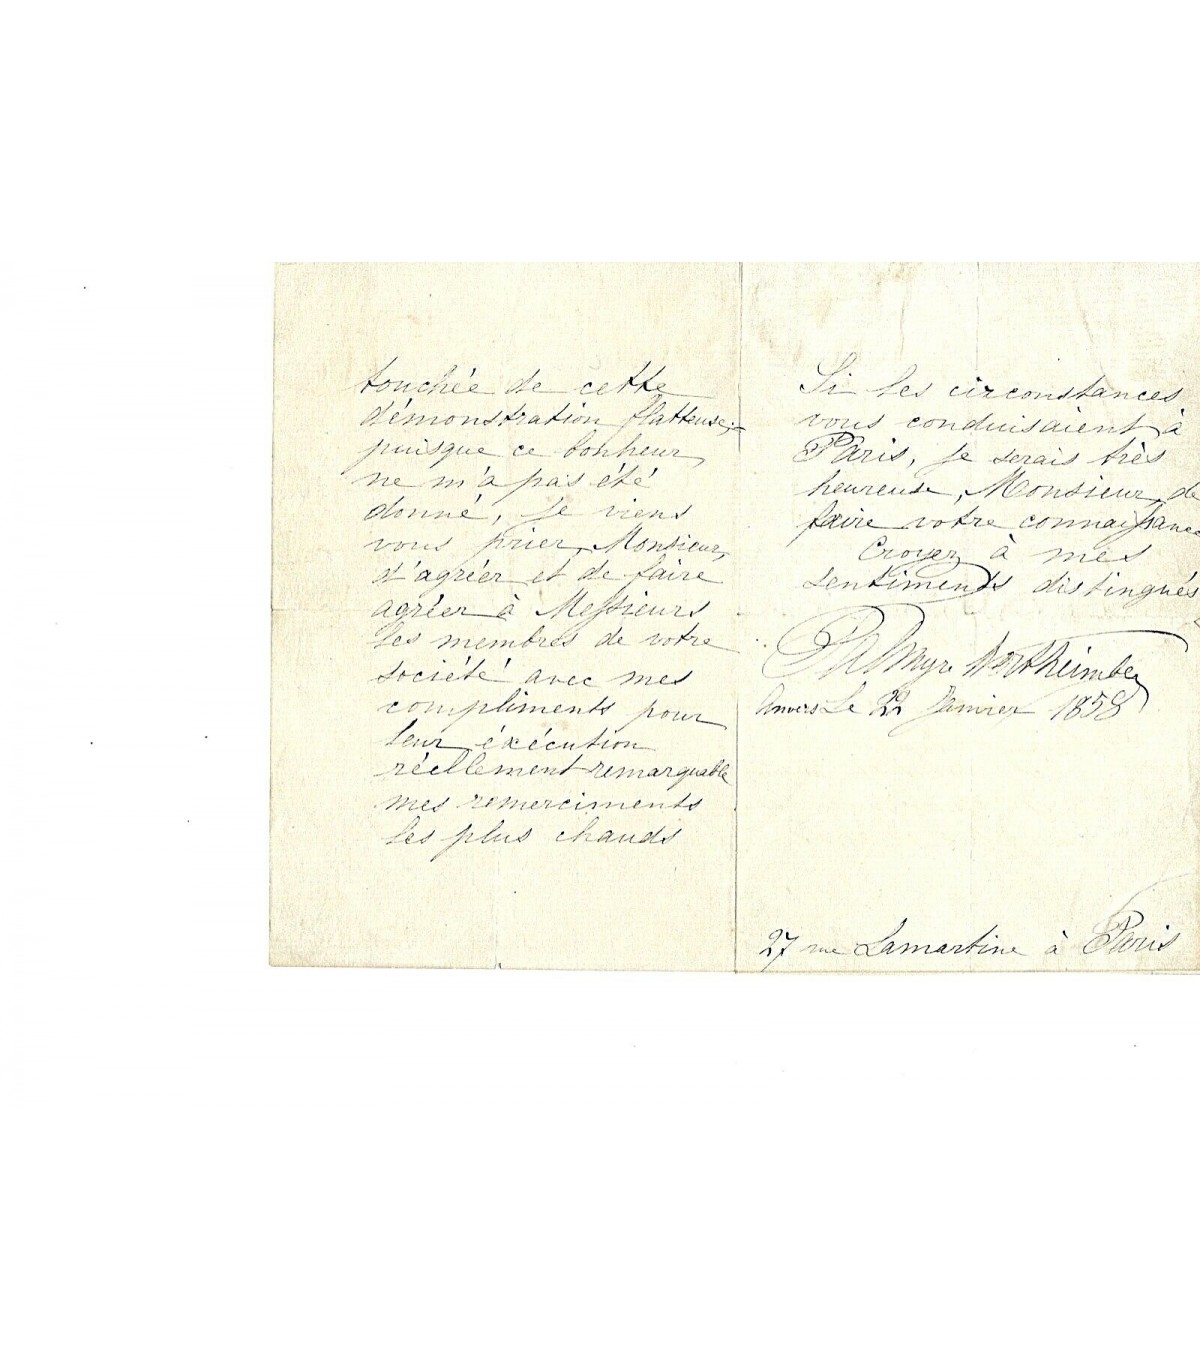 touchée de cette
démonstration flatteuse;
puisque ce bonheur
ne m'a pas été
donné, je viens
vous prier, Monsieur,
d'agréer et de faire
agréer à Messieurs
les membres de votre
société avec mes
compliments pour
leur éxécution
réellement remarquable
mes remerciments
les plus chauds
Si les circonstances
vous conduisaient à
Paris, je serais très
heureuse, Monsieur, de
faire votre connaissance
Croyez à mes
sentiments distingués
Palmyre Wertheimber
Anvers Le 22 Janvier 1858
27 rue Lamartine à Paris